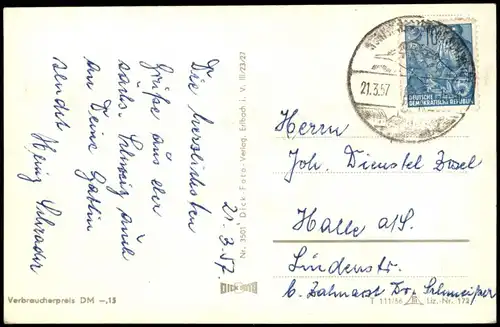 21.3.57
Die herzlichsten
Grüße aus der
sächs. Schweiz auch
an Deine Gattin
sendet Heinz Schrader
Nr. 3501 Dick-Foto-Verlag, Erlbach i. V. III/23/27
DICK FOTO
Verbraucherpreis DM –,15
21.3.57
10
DEUTSCHE
DEMOKRATISCHE REPUBLIK
Herrn
Joh. Dienstel
Halle a/S.
Lindenstr.
b. Zahnarzt Dr. Schmeißer
T 111/56 Liz.-Nr. 172